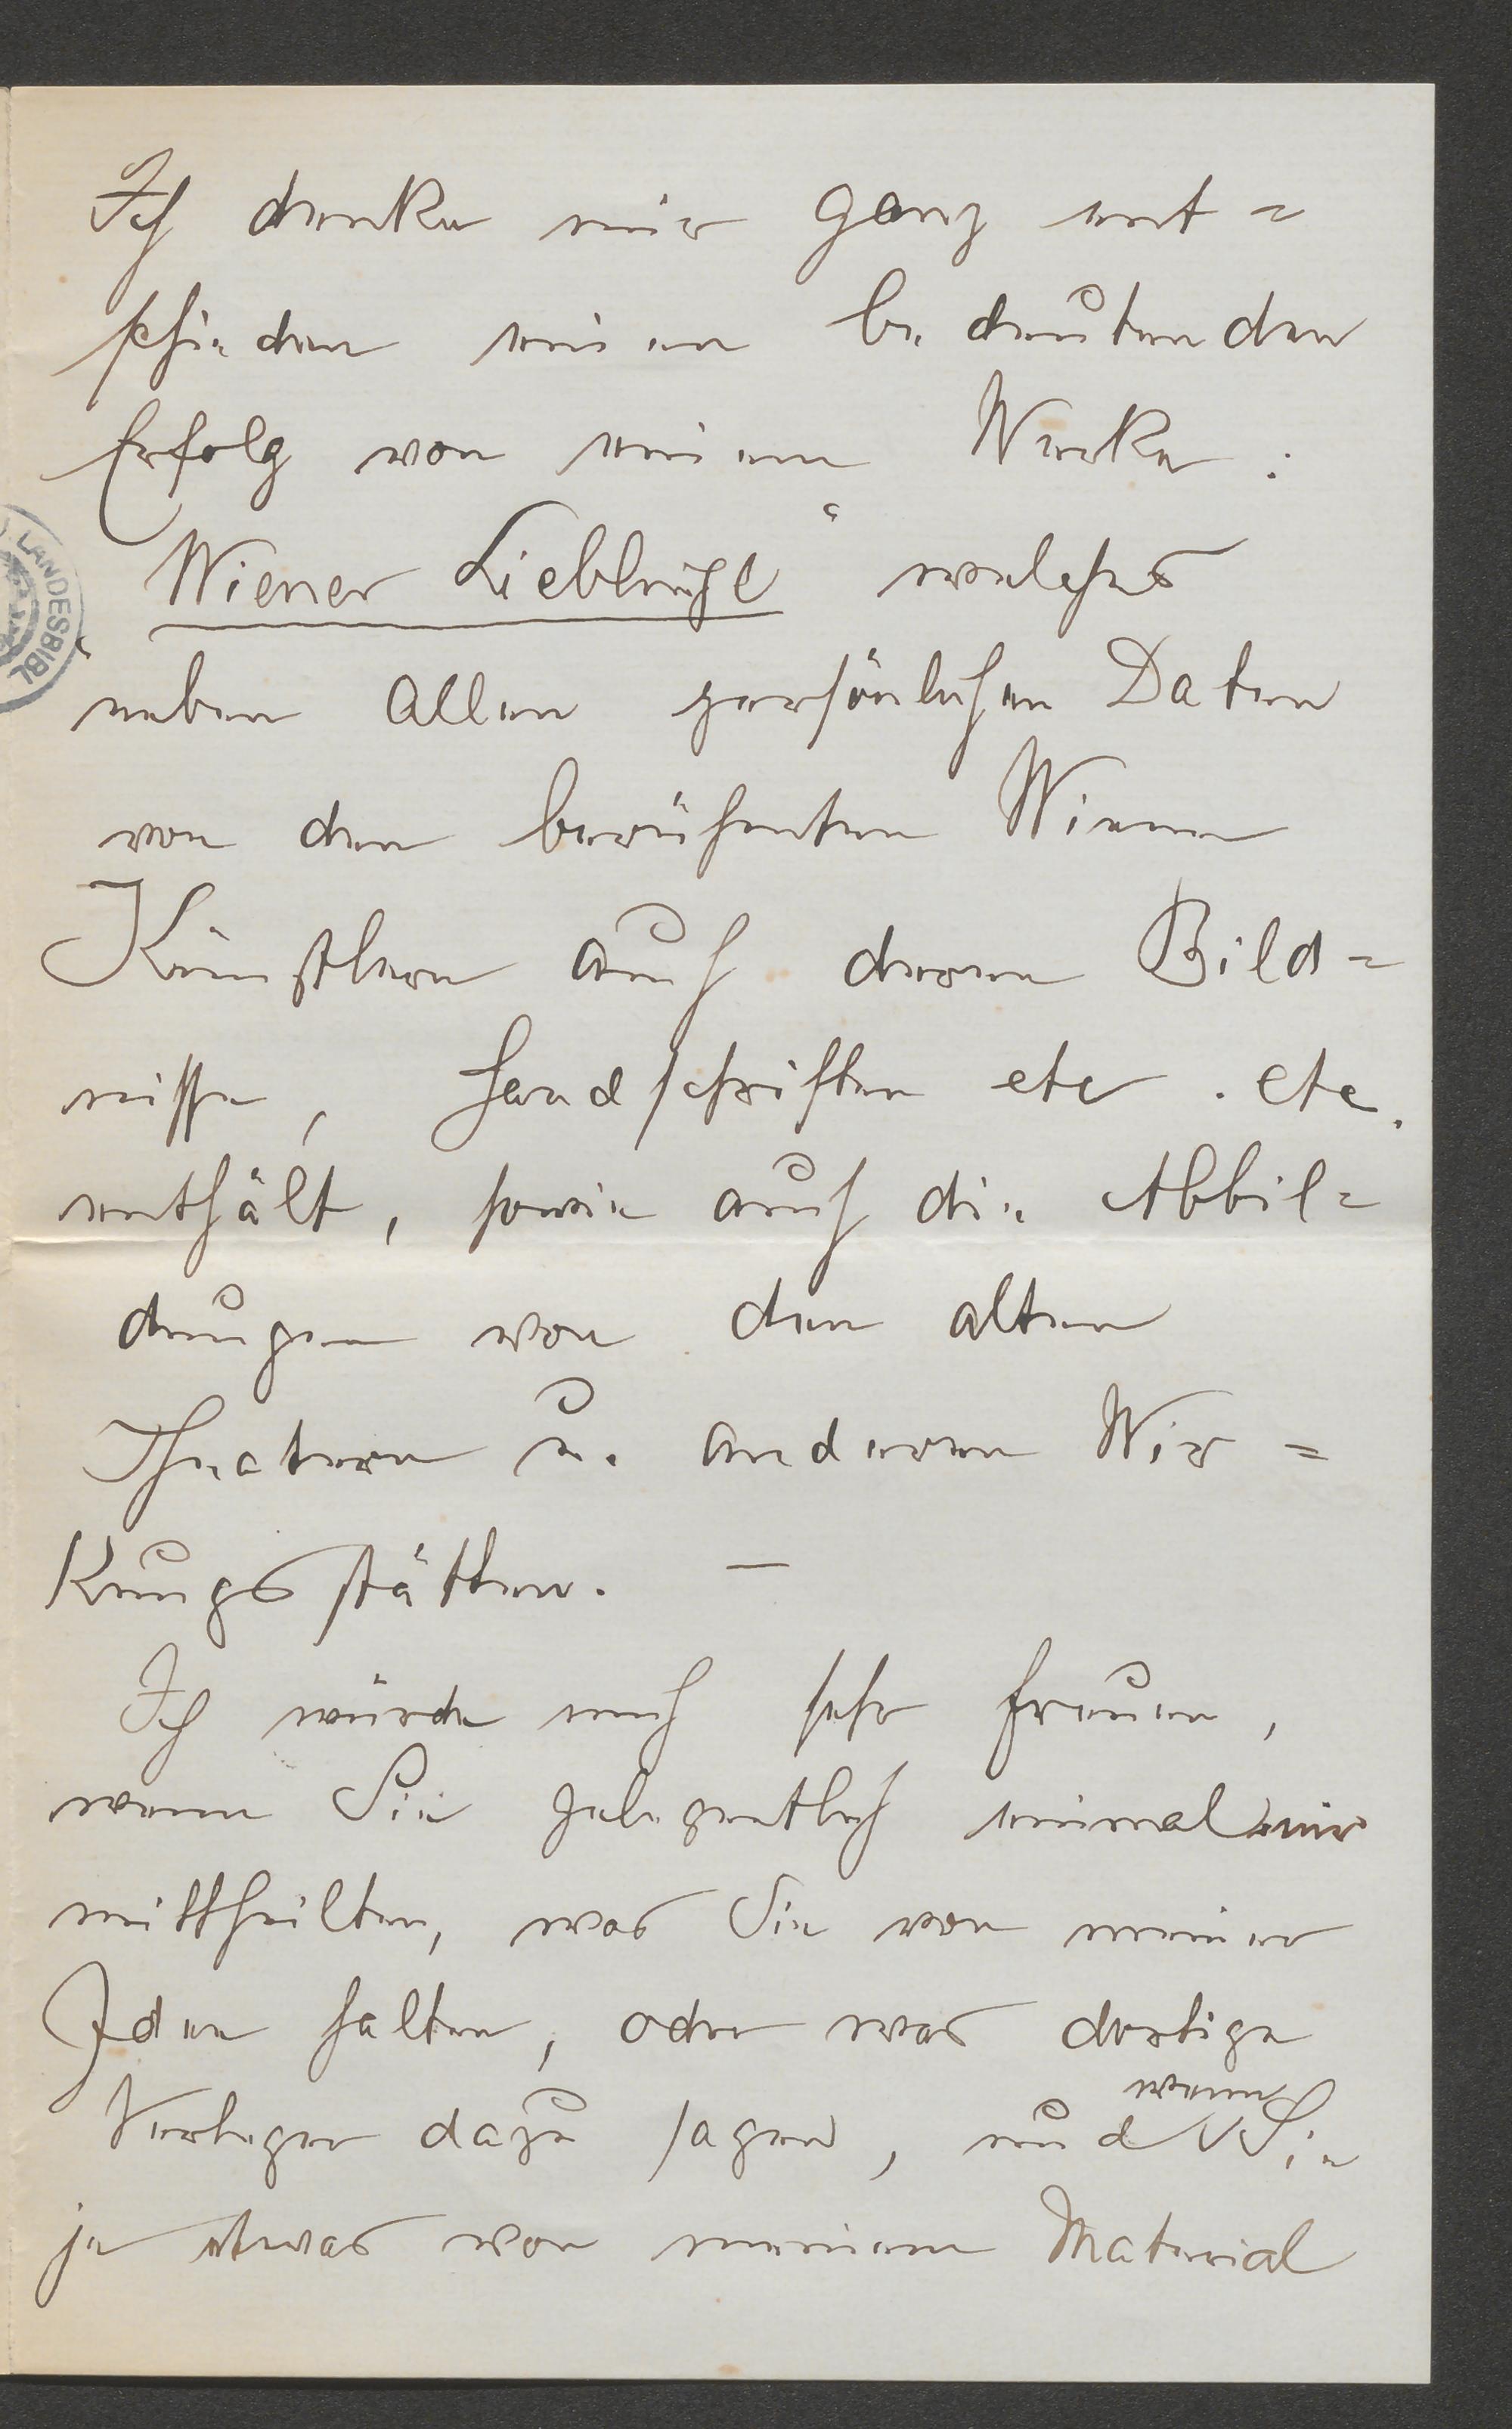 Ich denke mir ganz ent=
schieden einen bedeutenden
Erfolg von einem Werke:
„Wiener Lieblinge“ welches
neben allen persönlichen Daten
von den berühmten Wiener
Künstlern auch deren Bild=
nisse, Handschriften etc. etc.
enthält, sowie auch die Abbil=
dungen von den alten
Theatern u. anderen Wir=
kungsstätten. —
Ich würde mich sehr freuen,
wenn Sie gelegentlich einmal mir
mittheilten, was Sie von meiner
Idee halten, oder was dortige
Verleger dazu sagen, und wenn Sie
je etwas von meinem Material
LANDESBIBL